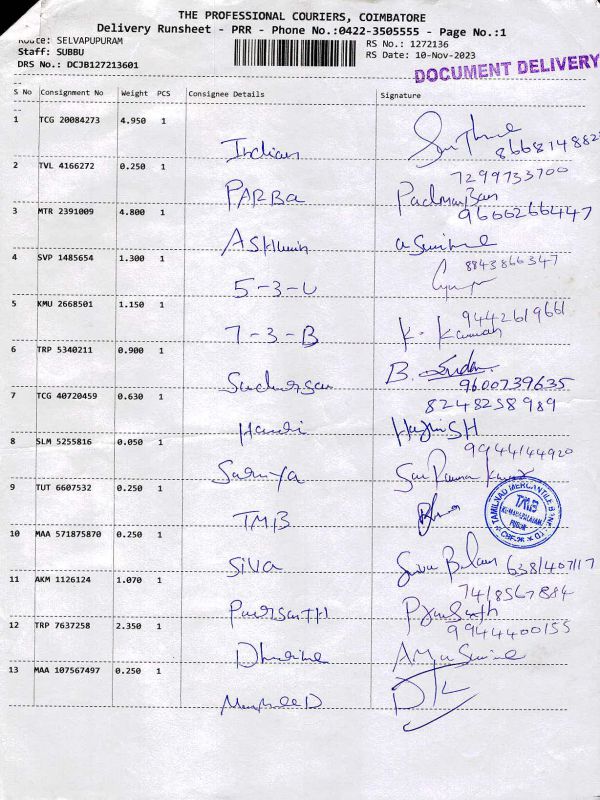 THE PROFESSIONAL COURIERS, COIMBATORE
Delivery Runsheet - PRR - Phone No.:0422-3505555 - Page No.:1
Route: SELVAPUPURAM
Staff: SUBBU
DRS No.: DCJB127213601
RS No.: 1272136
RS Date: 10-Nov-2023
DOCUMENT DELIVERY
S No Consignment No Weight PCS Consignee Details Signature
1 TCG 20084273 4.950 1
Indian 866814882
2 TVL 4166272 0.250 1 7299733700
PARBA
3 MTR 2391009 4.800 1 9666266447
AShwin
4 SVP 1485654 1.300 1 8843866347
5-3-U
5 KMU 2668501 1.150 1 9442619661
7-3-B K. Kannan
6 TRP 5340211 0.900 1 B.
9600739635
7 TCG 40720459 0.630 1 8248258989
8 SLM 5255816 0.050 1 9944144920
Saranya
9 TUT 6607532 0.250 1
TMB
TAMILNAD MERCANTILE BANK LTD
TMB
10 MAA 571875870 0.250 1
SIVA 6381407117
11 AKM 1126124 1.070 1 7418567884
12 TRP 7637258 2.350 1 9944400155
13 MAA 107567497 0.250 1